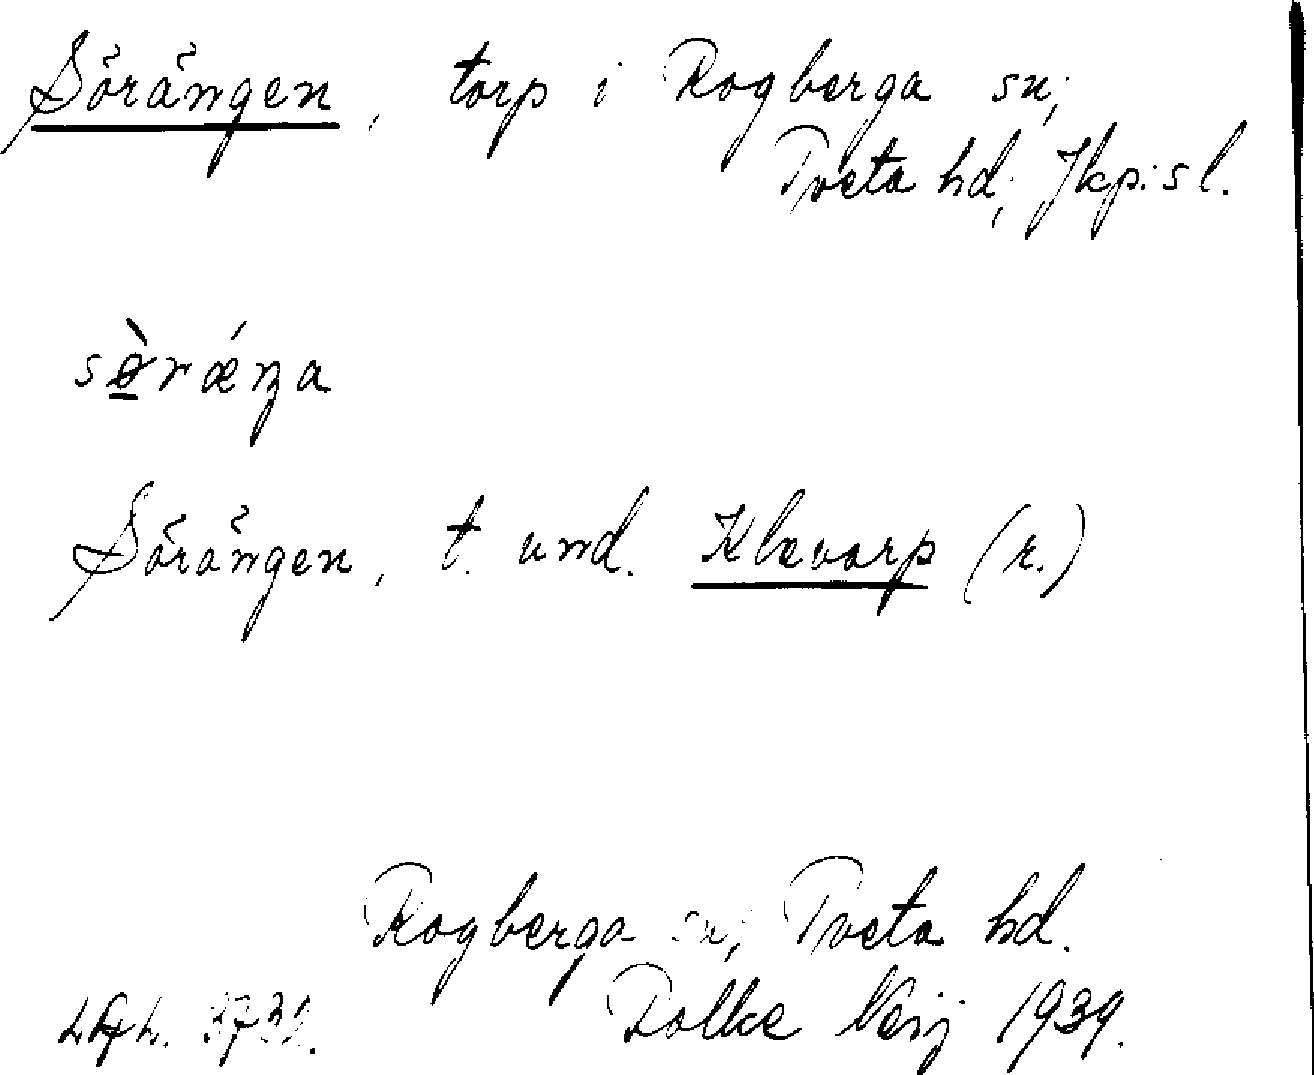 Sörängen, torp i Rogberga sn;
Tveta hd; Jkp:s l.
sø̀rǽŋa
Sörängen, t. und. Klevarp (r.)
Rogberga sn; Tveta hd.
Folke Neij 1939.